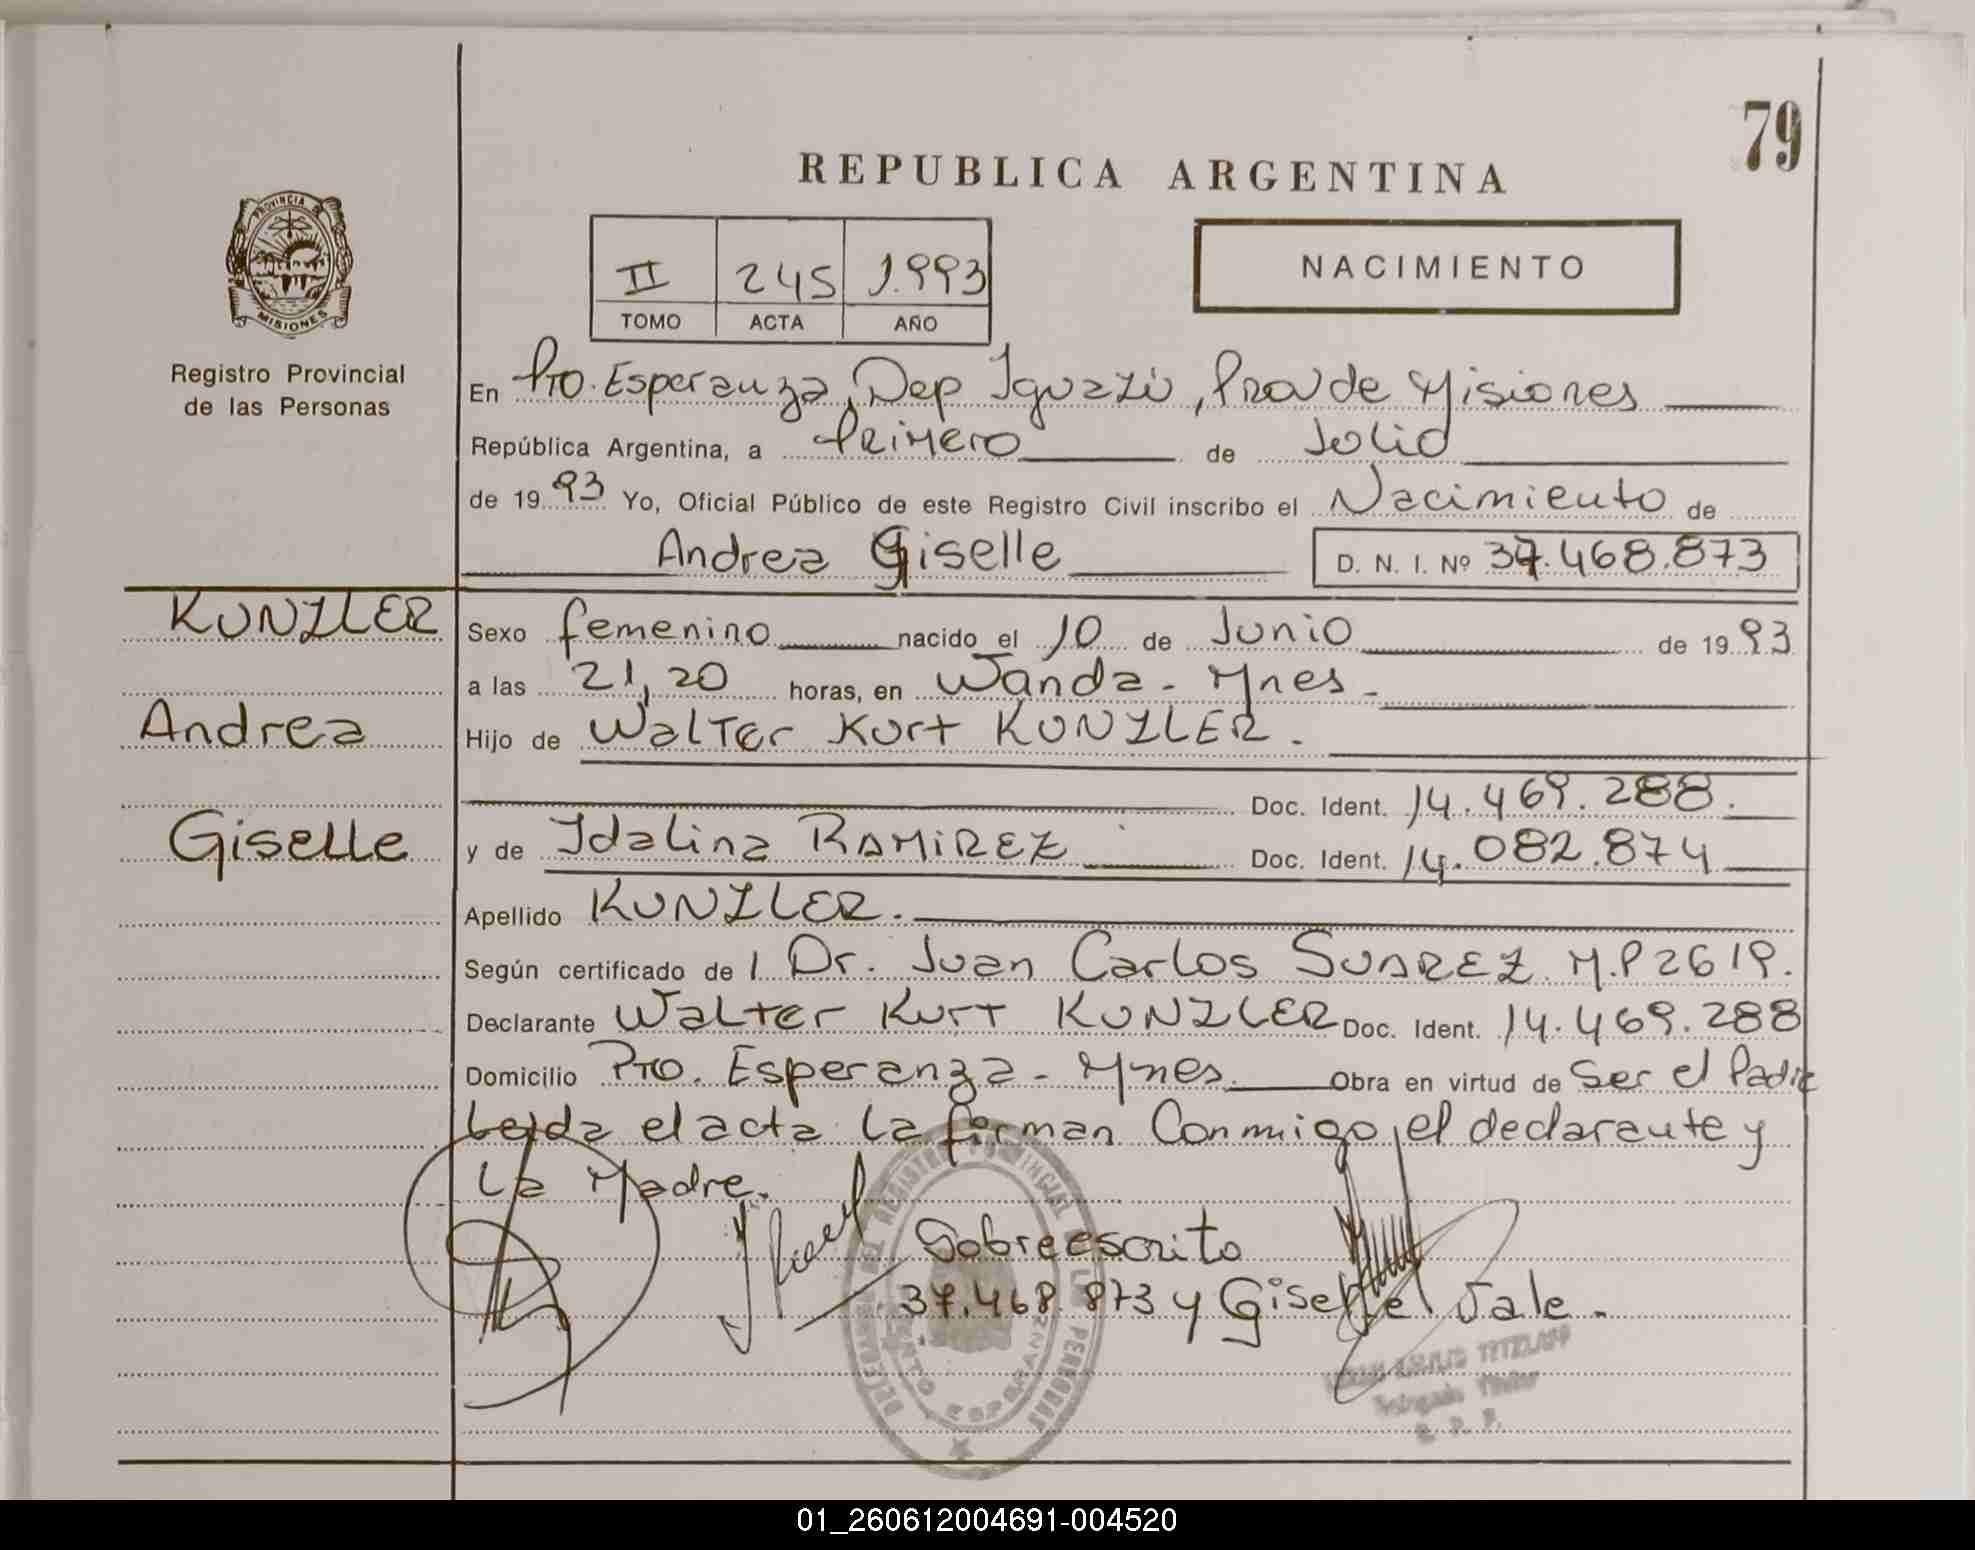 79
REPUBLICA ARGENTINA
PROVINCIA DE
MISIONES
Registro Provincial
de las Personas
II 245 1.993
TOMO ACTA AÑO
NACIMIENTO
En Pto. Esperanza, Dep Iguazú, Prov de Misiones
República Argentina, a Primero de Julio
de 1993 Yo, Oficial Público de este Registro Civil inscribo el Nacimiento de
Andrea Giselle D. N. I. Nº 37.468.873
KUNZLER
Andrea
Giselle
Sexo femenino nacido el 10 de Junio de 1993
a las 21,20 horas, en Wanda - Mnes -
Hijo de Walter Kurt KUNZLER.
Doc. Ident. 14.469.288.
y de Idalina RAMIREZ Doc. Ident. 14.082.874
Apellido KUNZLER.
Según certificado de l Dr. Juan Carlos SUAREZ M.P 2619.
Declarante Walter Kurt KUNZLER Doc. Ident. 14.469.288
Domicilio Pto. Esperanza - Mnes. Obra en virtud de Ser el Padre
Leida el acta la firman Conmigo, el declarante y
La Madre.
Sobreescrito
37.468.873 y Giselle Vale.
REGISTRO PROVINCIAL DE LAS PERSONAS
PUERTO ESPERANZA
Delegado Titular
R. P. P.
01_260612004691-004520